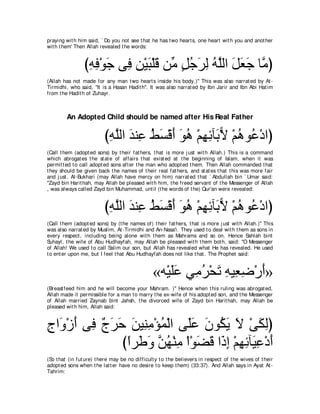 praying with him said, `Do you not see that he has two hearts, one heart with you and another
with them' Then Allah revealed the words:
﴿مَّا جَعَلَ اللَّهُ لِرَجُلٍ مِّن قَلْبَيْنِ فِى جَوْفِهِ﴾
(Allah has not made for any man two hearts inside his body.)" This was also narrated by At-
Tirmidhi, who said, "It is a Hasan Hadith". It was also narrated by Ibn Jarir and Ibn Abi Hatim
from the Hadith of Zuhayr.
An Adopted Child should be named after His Real Father
﴿ادْعُوهُمْ لاٌّبَآئِهِمْ هُوَ أَقْسَطُ عِندَ اللَّهِ﴾
(Call them (adopted sons) by their fathers, that is more just with Allah.) This is a command
which abrogates the state of affairs that existed at the beginning of Islam, when it was
permitted to call adopted sons after the man who adopted them. Then Allah commanded that
they should be given back the names of their real fathers, and states that this was more fair
and just. Al-Bukhari (may Allah have mercy on him) narrated that `Abdullah bin `Umar said:
"Zayd bin Harithah, may Allah be pleased with him, the freed servant of the Messenger of Allah
, was always called Zayd bin Muhammad, until (the words of the) Qur'an were revealed:
﴿ادْعُوهُمْ لاٌّبَآئِهِمْ هُوَ أَقْسَطُ عِندَ اللَّهِ﴾
(Call them (adopted sons) by (the names of) their fathers, that is more just with Allah.)" This
was also narrated by Muslim, At-Tirmidhi and An-Nasa'i. They used to deal with them as sons in
every respect, including being alone with them as Mahrams and so on. Hence Sahlah bint
Suhayl, the wife of Abu Hudhayfah, may Allah be pleased with them both, said: "O Messenger
of Allah! We used to call Salim our son, but Allah has revealed what He has revealed. He used
to enter upon me, but I feel that Abu Hudhayfah does not like that. The Prophet said:
«أَرْضِعِيهِ تَحْرُمِي عَلَيْه»
(Breastfeed him and he will become your Mahram. )" Hence when this ruling was abrogated,
Allah made it permissible for a man to marry the ex-wife of his adopted son, and the Messenger
of Allah married Zaynab bint Jahsh, the divorced wife of Zayd bin Harithah, may Allah be
pleased with him, Allah said:
﴿لِكَىْ لاَ يَكُونَ عَلَى الْمُؤْمِنِينَ حَرَجٌ فِى أَزْوَاجِ
أَدْعِيَآئِهِمْ إِذَا قَضَوْاْ مِنْهُنَّ وَطَراً﴾
(So that (in future) there may be no difficulty to the believers in respect of the wives of their
adopted sons when the latter have no desire to keep them) (33:37). And Allah says in Ayat At-
Tahrim: